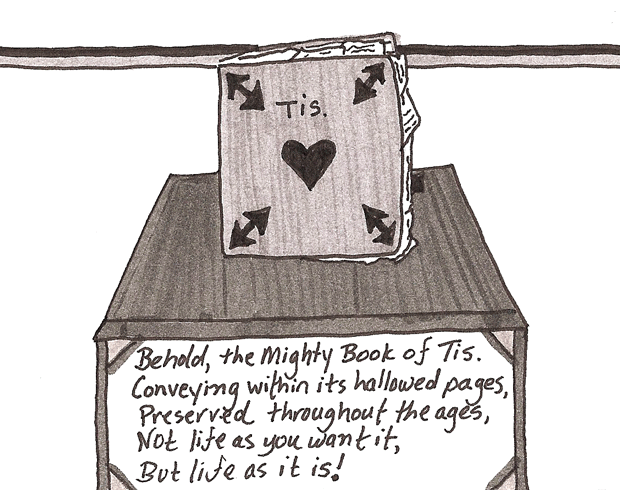 Tis.
Behold, the Mighty Book of Tis.
Conveying within its hallowed pages,
Preserved throughout the ages,
Not life as you want it,
But life as it is!